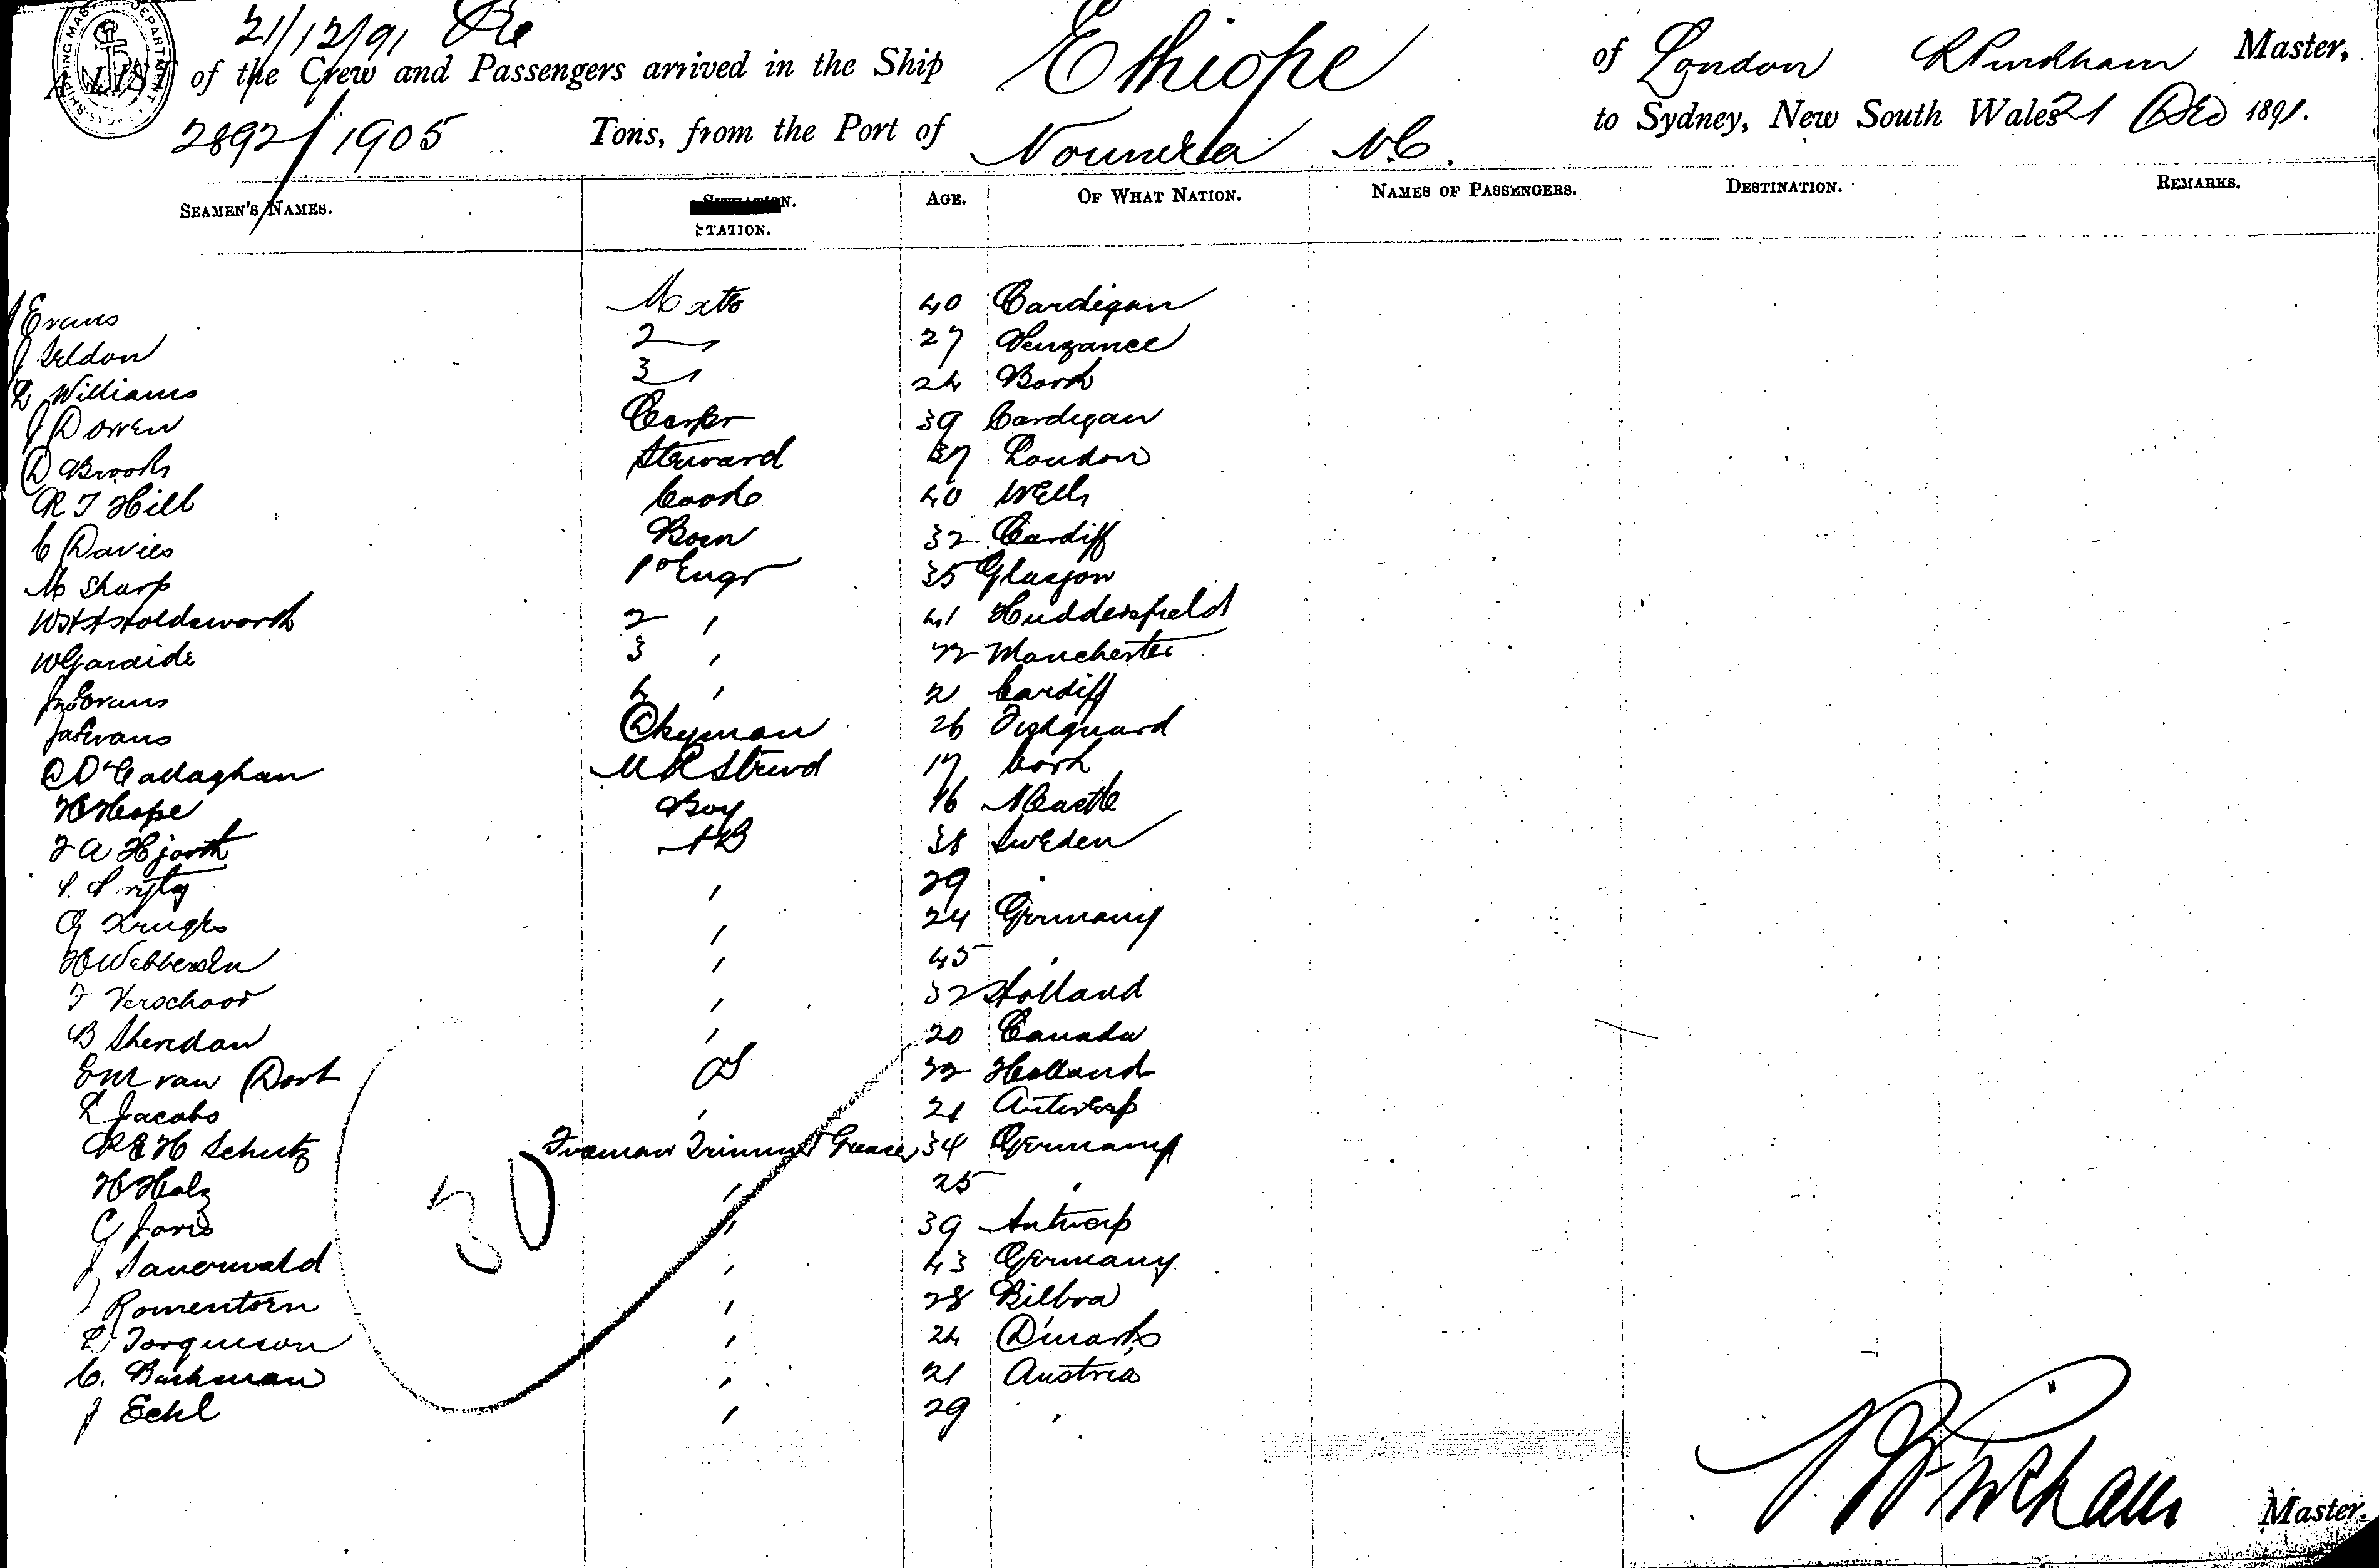 SHIPPING MASTER'S DEPARTMENT
21/12/91
A LIST of the Crew and Passengers arrived in the Ship Ethiope of London R Pinkham Master,
2892/1905 Tons, from the Port of Noumea N.C. to Sydney, New South Wales 21 Dec 1891.
SEAMEN'S NAMES. STATION. AGE. OF WHAT NATION. NAMES OF PASSENGERS. DESTINATION. REMARKS.
Evans Mate 40 Cardigan
J Seldon 2 " 27 Penzance
Williams 3 " 24 Borth
J D Owen Carpr 39 Cardigan
D Brooks Steward 37 London
R T Hill Cook 40 Wells
C Davies Bosn 32 Cardiff
M Sharp 1st Engr 35 Glasgow
W H Holdsworth 2 " 41 Huddersfield
W Garside 3 " 22 Manchester
Jno Evans 4 " 21 Cardiff
Jas Evans Dkyman 26 Fishguard
D O'Callaghan M R Stewd 17 Cork
H Hope Boy 16 NCastle
F A Hjorth AB 38 Sweden
" 29 "
G Kruger " 24 Germany
H Webberseln " 45 "
F Verschoor " 32 Holland
B Sheridan " 20 Canada
E M van Dort OS 22 Holland
L Jacobs " 21 Antwerp
R E H Schutz Fireman Trimmer & Greaser 34 Germany
H Holz " 25 "
C Joris " 39 Antwerp
J Sauerwald " 43 Germany
J Romentorn " 28 Bilboa
L Torqueson " 24 D'mark
C. Bushman " 21 Austria
J Eckl " 29 "
30
R Pinkham Master.